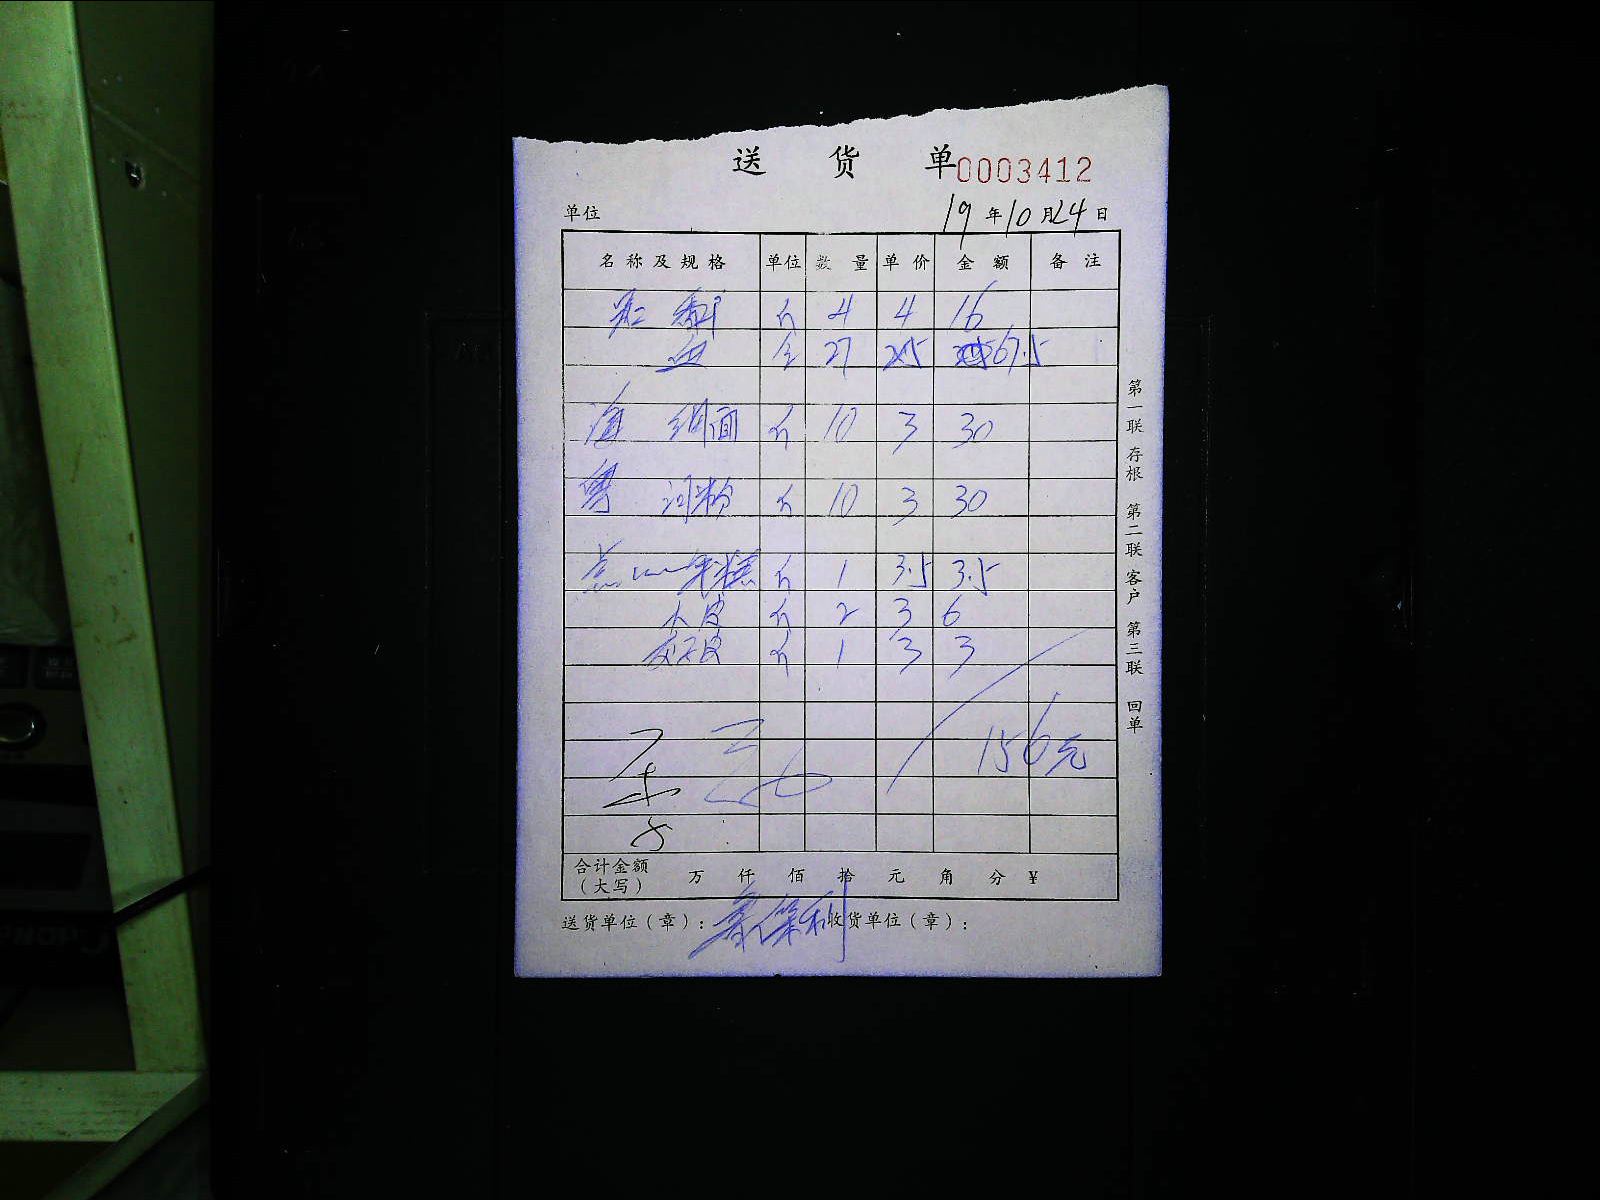 送货单 0003412
单位 19年10月24日
名称及规格 单位 数量 单价 金额 备注
斤 4 4 16
27 2.5 67.5
细面 斤 10 3 30
粤 河粉 斤 10 3 30
点 年糕 斤 1 3.5 3.5
大皮 斤 2 3 6
饺子皮 斤 1 3 3
156元
合计金额（大写） 万 仟 佰 拾 元 角 分 ¥
送货单位（章）： 收货单位（章）：
第一联 存根 第二联 客户 第三联 回单